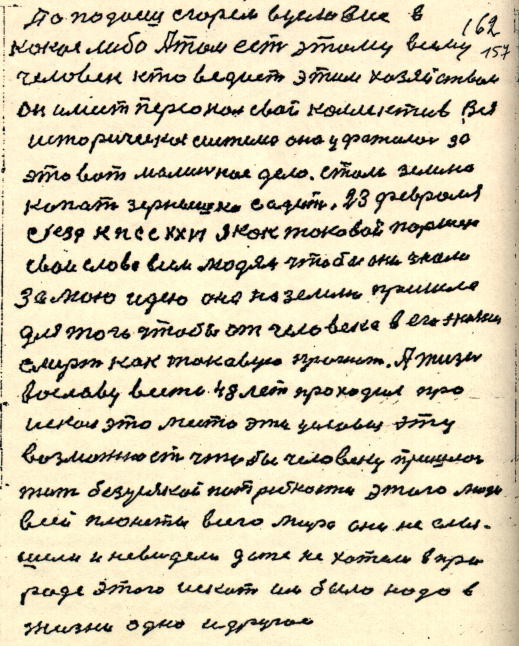 По подош сгорел вуславие в
162
какое либо Атом ест этому всему
157
человек кто ведает этим хозяйством
он имеет персонал свой коллектив Вся
историческая система она ухватилас за
это вот маленкое дело. стали землю
копат зернышка садит. 23 февраля
сезд кпсс XXVI Я как таковой
свои слова всем людям чтобы они знали
За мою идею она на землю пришла
для того чтобы от человека в его жизни
смерт как таковую прогнат. А жизн
вославу вечно 48 лет проходил про
искал это место эти условия эту
возможност чтобы человеку пришлос
жит безусякой потребности этого люди
всей планеты всего мира они не слы-
шели и невидели даже не хотели в при
роде этого искат им было надо в
жизни одно и другое